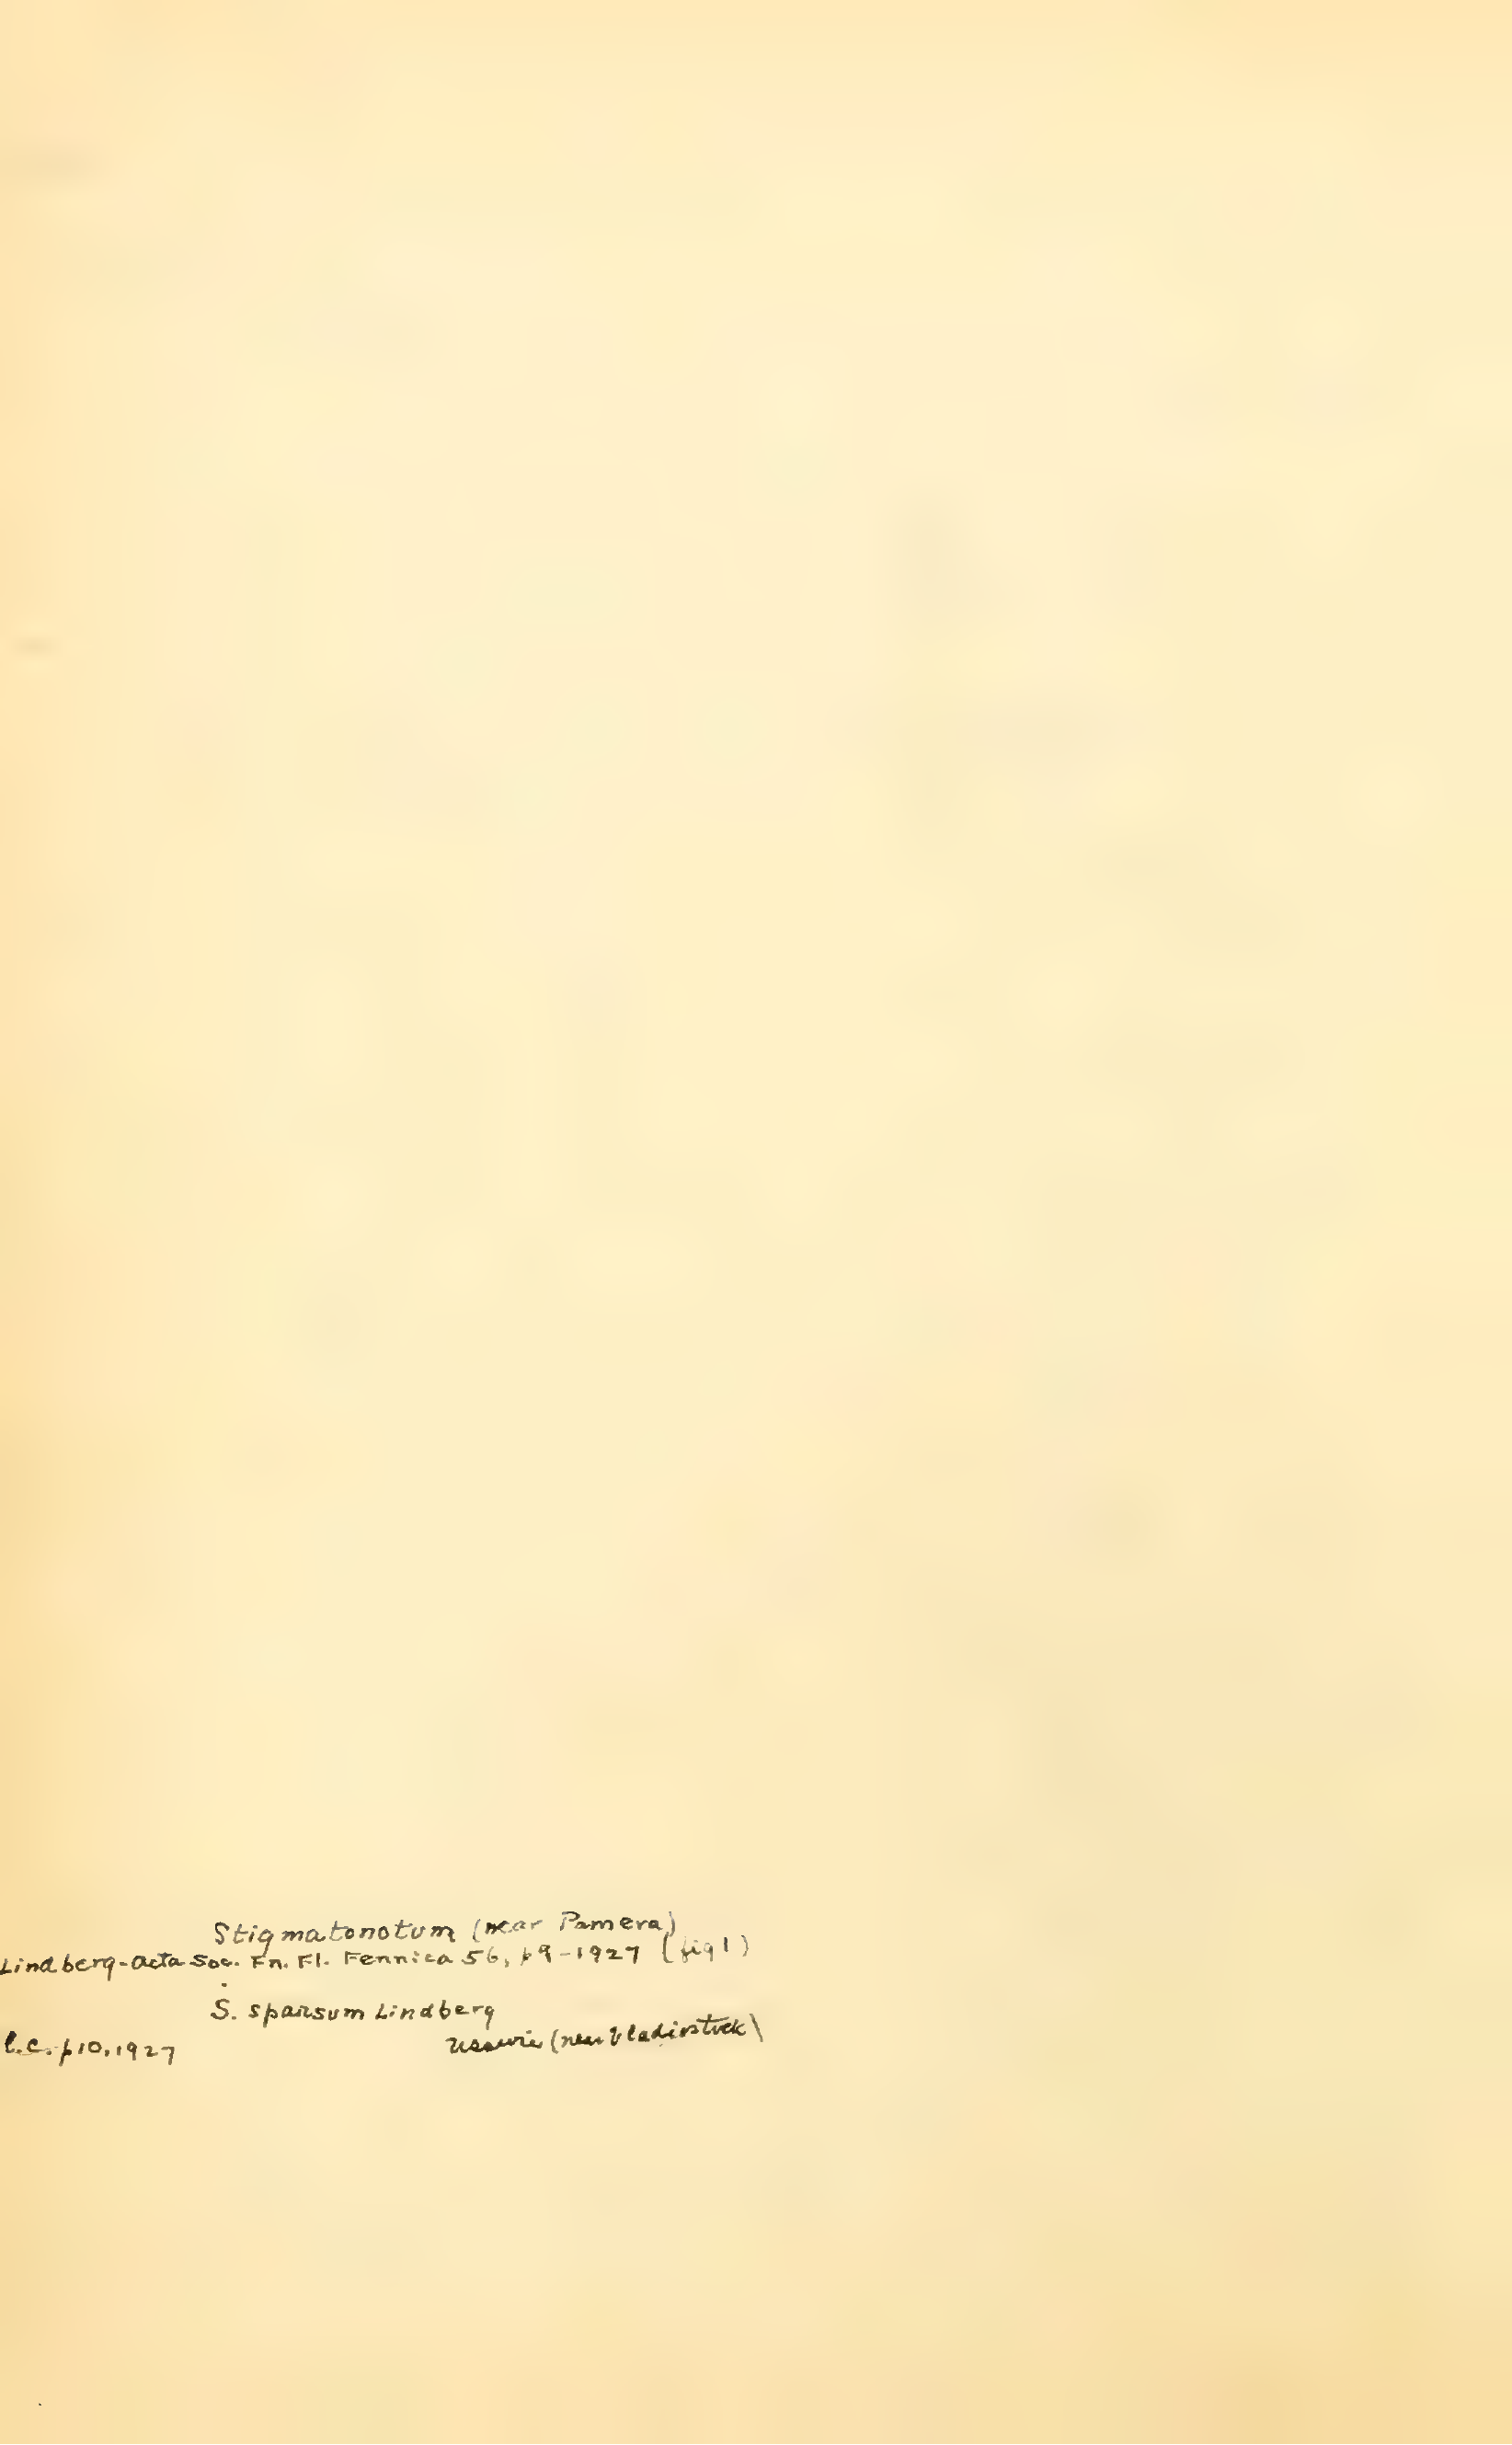 Stigmatonotum (near Pamera)
Lindberg-Acta Soc. Fn. Fl. Fennica 56, p9-1927 (fig 1)
S. sparsum Lindberg
l.c. p10, 1927 Ussurie (near Vladivostock)